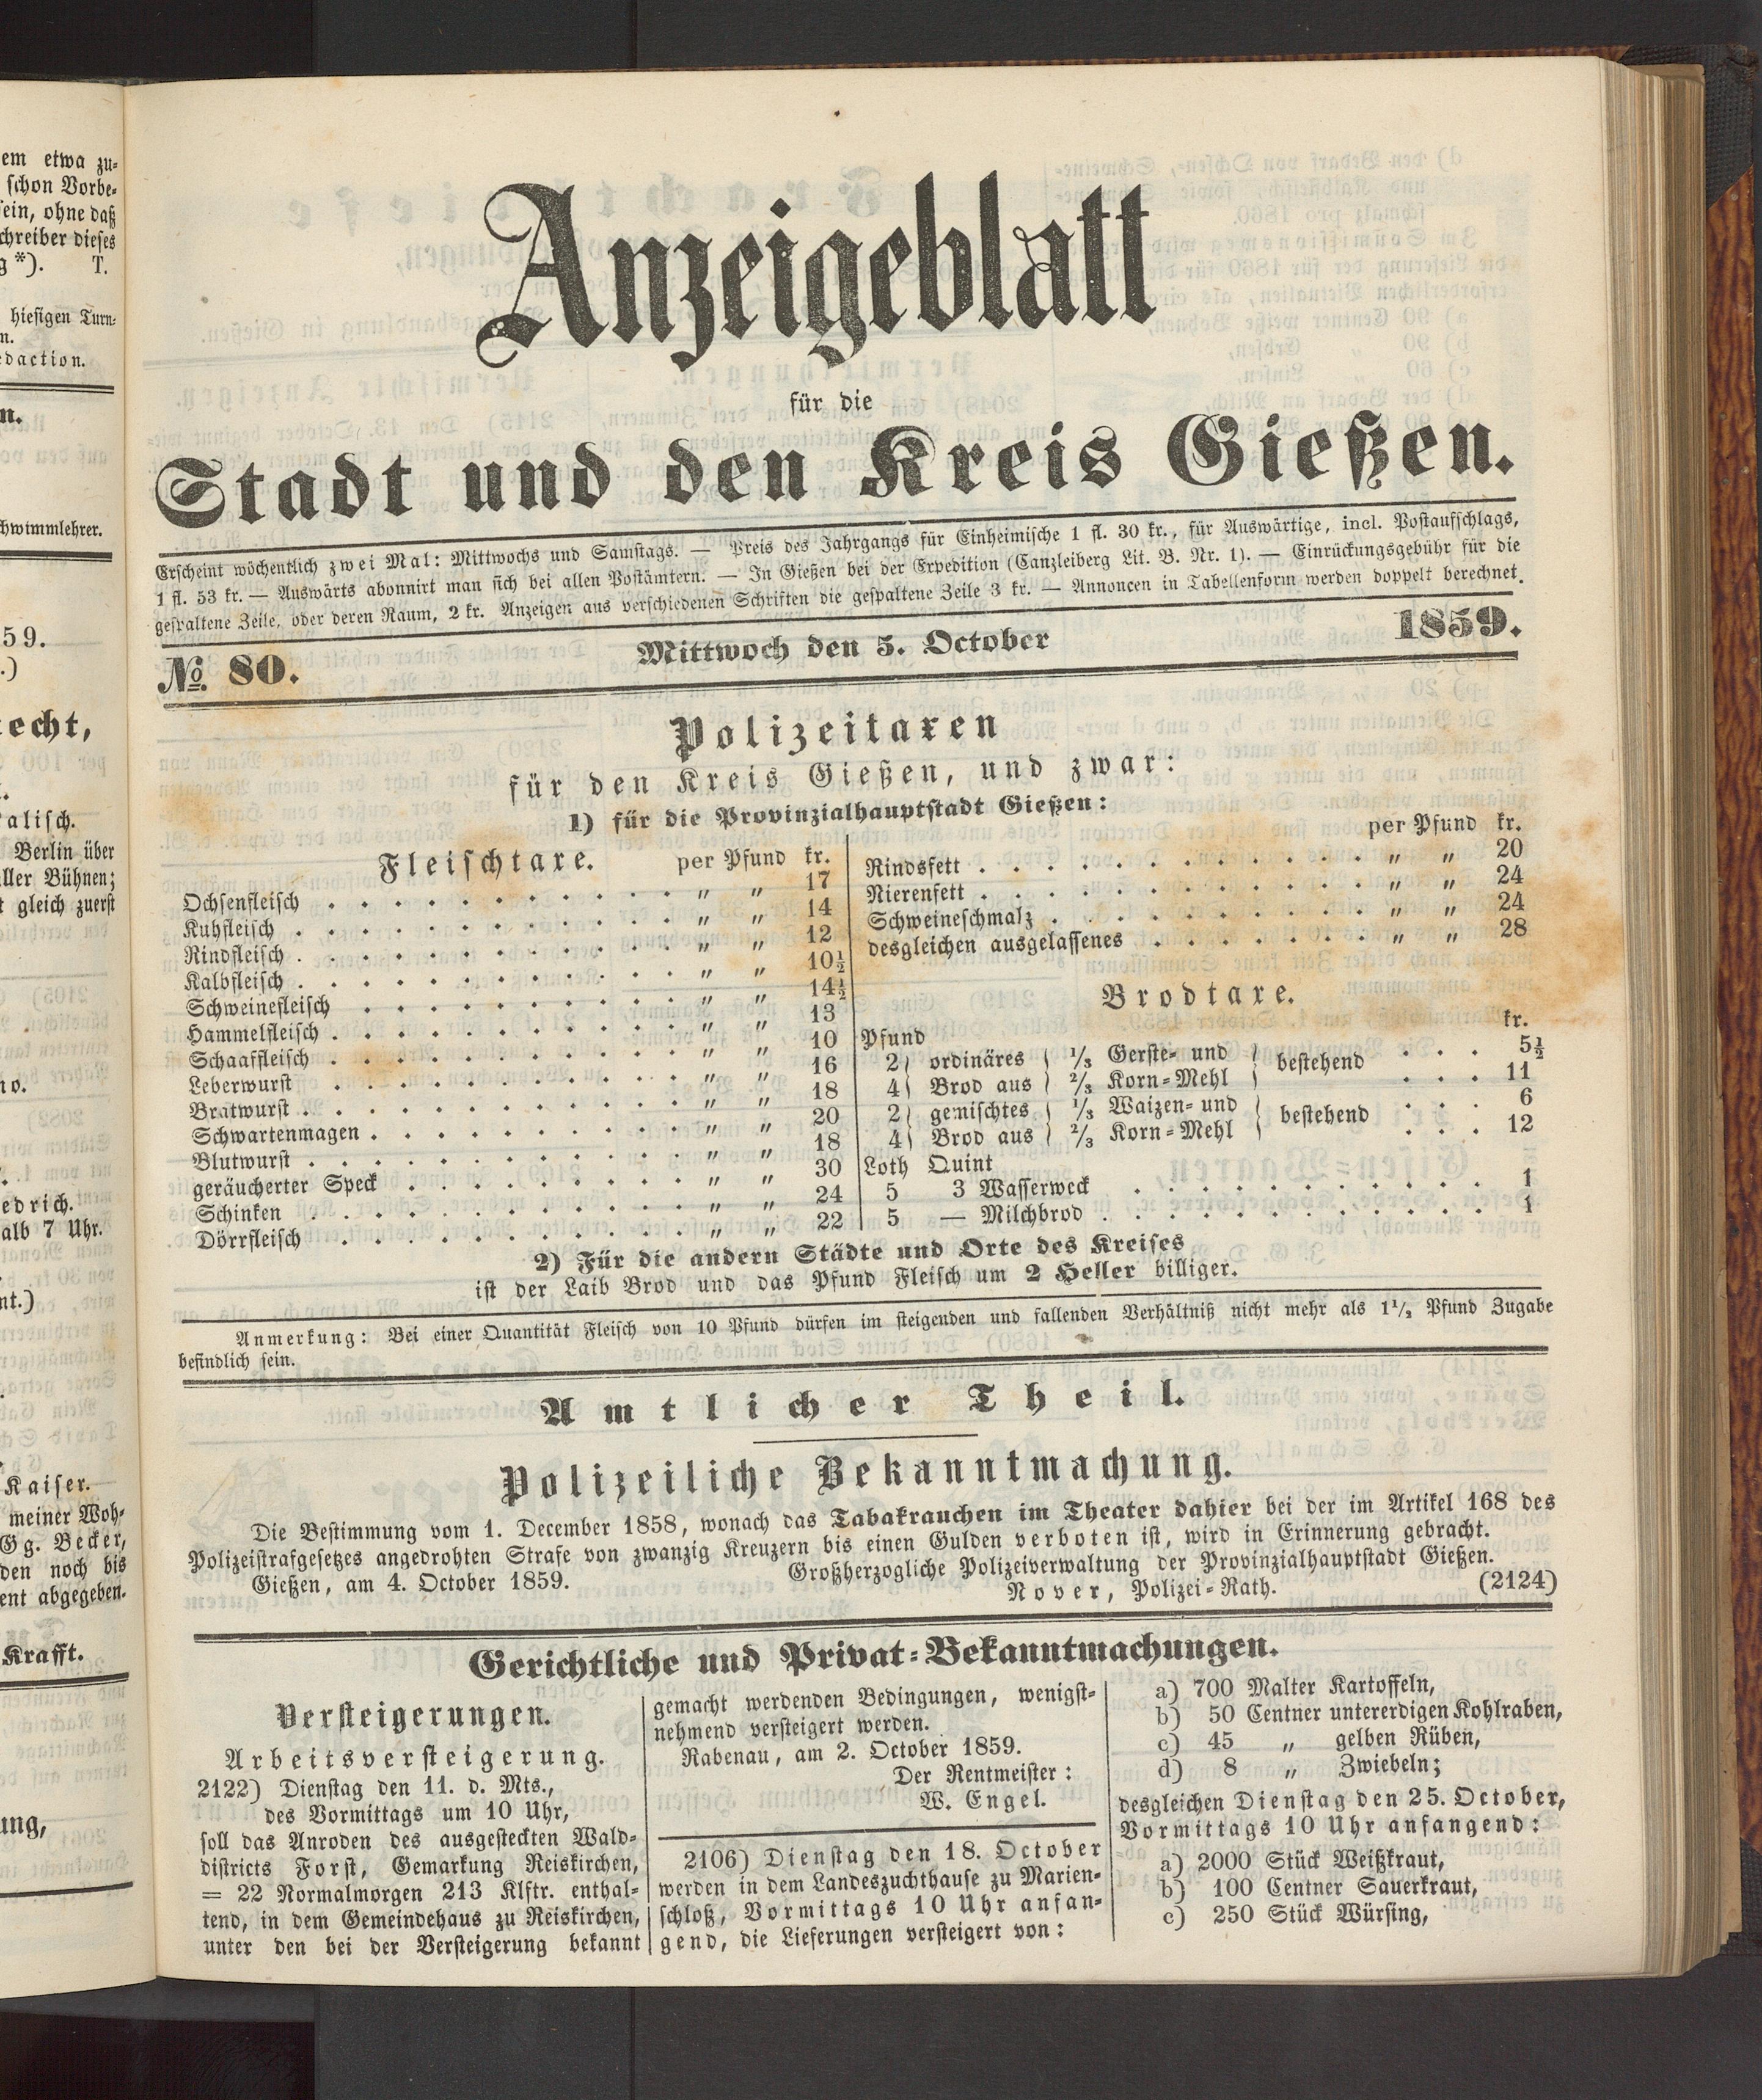 em etwa zu-
schon Vorbe-
sein, ohne daß
chreiber dieses
g *). T.
hiesigen Turn-
n.
edaction.
n.
chwimmlehrer.
59.
.)
echt,
alisch.
Berlin über
ller Bühnen;
t gleich zuerst
no.
edrich.
alb 7 Uhr.
nt.)
Kaiser.
meiner Woh-
Gg. Becker,
den noch bis
ent abgegeben.
Krafft.
ung,
Anzeigeblatt
für die
Stadt und den Kreis Gießen.
Erscheint wöchentlich zwei Mal: Mittwochs und Samstags. — Preis des Jahrgangs für Einheimische 1 fl. 30 kr., für Auswärtige, incl. Postaufschlags,
1 fl. 53 kr. — Auswärts abonnirt man sich bei allen Postämtern. — In Gießen bei der Expedition (Canzleiberg Lit. B. Nr. 1). — Einrückungsgebühr für die
gespaltene Zeile, oder deren Raum, 2 kr. Anzeigen aus verschiedenen Schriften die gespaltene Zeile 3 kr. — Annoncen in Tabellenform werden doppelt berechnet.
№ 80. Mittwoch den 5. October 1859.
Polizeitaxen
für den Kreis Gießen, und zwar:
1) für die Provinzialhauptstadt Gießen:
Fleischtaxe. per Pfund kr.
Ochsenfleisch . . . . . . . . . . „ „ 17
Kuhfleisch . . . . . . . . . . „ „ 14
Rindfleisch . . . . . . . . . . „ „ 12
Kalbfleisch . . . . . . . . . . „ „ 10½
Schweinefleisch . . . . . . . . . . „ „ 14½
Hammelfleisch . . . . . . . . . . „ „ 13
Schaaffleisch . . . . . . . . . . „ „ 10
Leberwurst . . . . . . . . . . „ „ 16
Bratwurst . . . . . . . . . . „ „ 18
Schwartenmagen . . . . . . . . . . „ „ 20
Blutwurst . . . . . . . . . . „ „ 18
geräucherter Speck . . . . . . . . „ „ 30
Schinken . . . . . . . . . . „ „ 24
Dörrfleisch . . . . . . . . . . „ „ 22
per Pfund kr.
Rindsfett . . . . . . . . . . „ „ 20
Nierenfett . . . . . . . . . . „ „ 24
Schweineschmalz . . . . . . . . . . „ „ 24
desgleichen ausgelassenes . . . . . . . „ „ 28
Brodtaxe.
kr.
Pfund
2} ordinäres { 1/3 Gerste- und } bestehend . . . 5½
4} Brod aus { 2/3 Korn-Mehl } . . . 11
2} gemischtes { 1/3 Waizen- und } bestehend . . . 6
4} Brod aus { 2/3 Korn-Mehl } . . . 12
Loth Quint
5 3 Wasserweck . . . . . . . . . . 1
5 — Milchbrod . . . . . . . . . . 1
2) Für die andern Städte und Orte des Kreises
ist der Laib Brod und das Pfund Fleisch um 2 Heller billiger.
Anmerkung: Bei einer Quantität Fleisch von 10 Pfund dürfen im steigenden und fallenden Verhältniß nicht mehr als 1 1/2 Pfund Zugabe
befindlich sein.
Amtlicher Theil.
Polizeiliche Bekanntmachung.
Die Bestimmung vom 1. December 1858, wonach das Tabakrauchen im Theater dahier bei der im Artikel 168 des
Polizeistrafgesetzes angedrohten Strafe von zwanzig Kreuzern bis einen Gulden verboten ist, wird in Erinnerung gebracht.
Gießen, am 4. October 1859. Großherzogliche Polizeiverwaltung der Provinzialhauptstadt Gießen.
Nover, Polizei-Rath. (2124)
Gerichtliche und Privat-Bekanntmachungen.
Versteigerungen.
Arbeitsversteigerung.
2122) Dienstag den 11. d. Mts.,
des Vormittags um 10 Uhr,
soll das Anroden des ausgesteckten Wald-
districts Forst, Gemarkung Reiskirchen,
= 22 Normalmorgen 213 Klftr. enthal-
tend, in dem Gemeindehaus zu Reiskirchen,
unter den bei der Versteigerung bekannt
gemacht werdenden Bedingungen, wenigst-
nehmend versteigert werden.
Rabenau, am 2. October 1859.
Der Rentmeister:
W. Engel.
2106) Dienstag den 18. October
werden in dem Landeszuchthause zu Marien-
schloß, Vormittags 10 Uhr anfan-
gend, die Lieferungen versteigert von:
a) 700 Malter Kartoffeln,
b) 50 Centner untererdigen Kohlraben,
c) 45 „ gelben Rüben,
d) 8 „ Zwiebeln;
desgleichen Dienstag den 25. October,
Vormittags 10 Uhr anfangend:
a) 2000 Stück Weißkraut,
b) 100 Centner Sauerkraut,
c) 250 Stück Würsing,